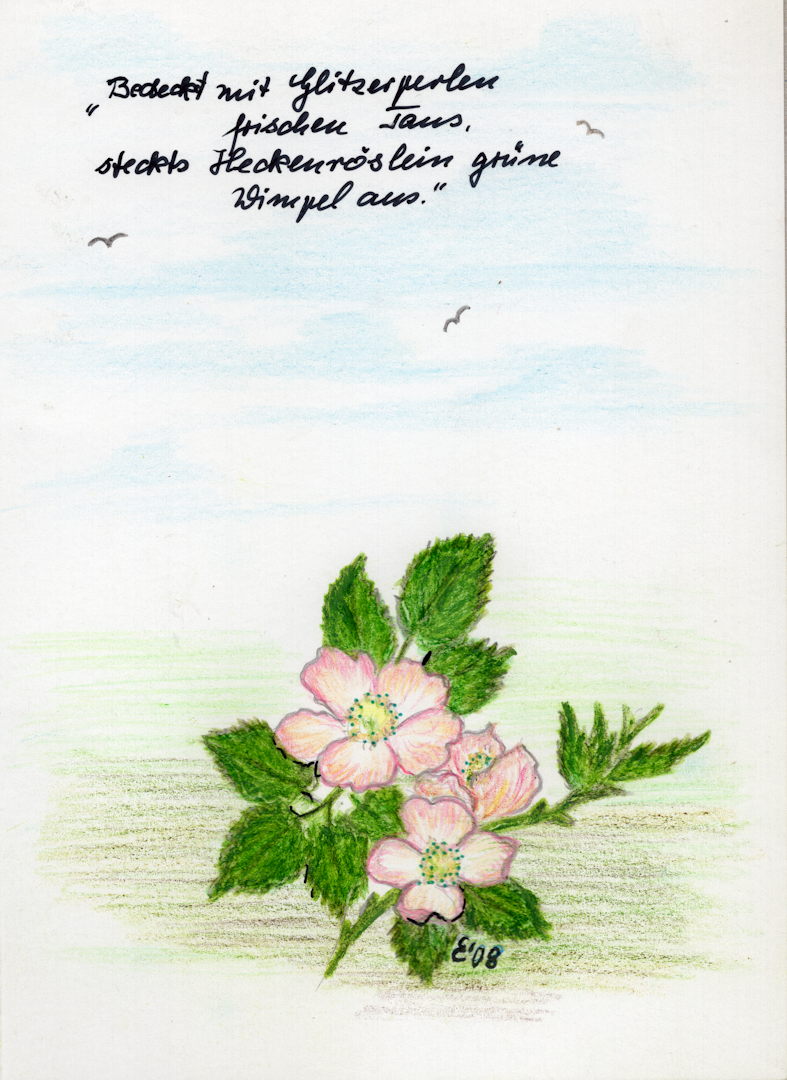 „Bedeckt mit Glitzerperlen
frischen Taus,
steckts Heckenröslein grüne
Wimpel aus."
E'08